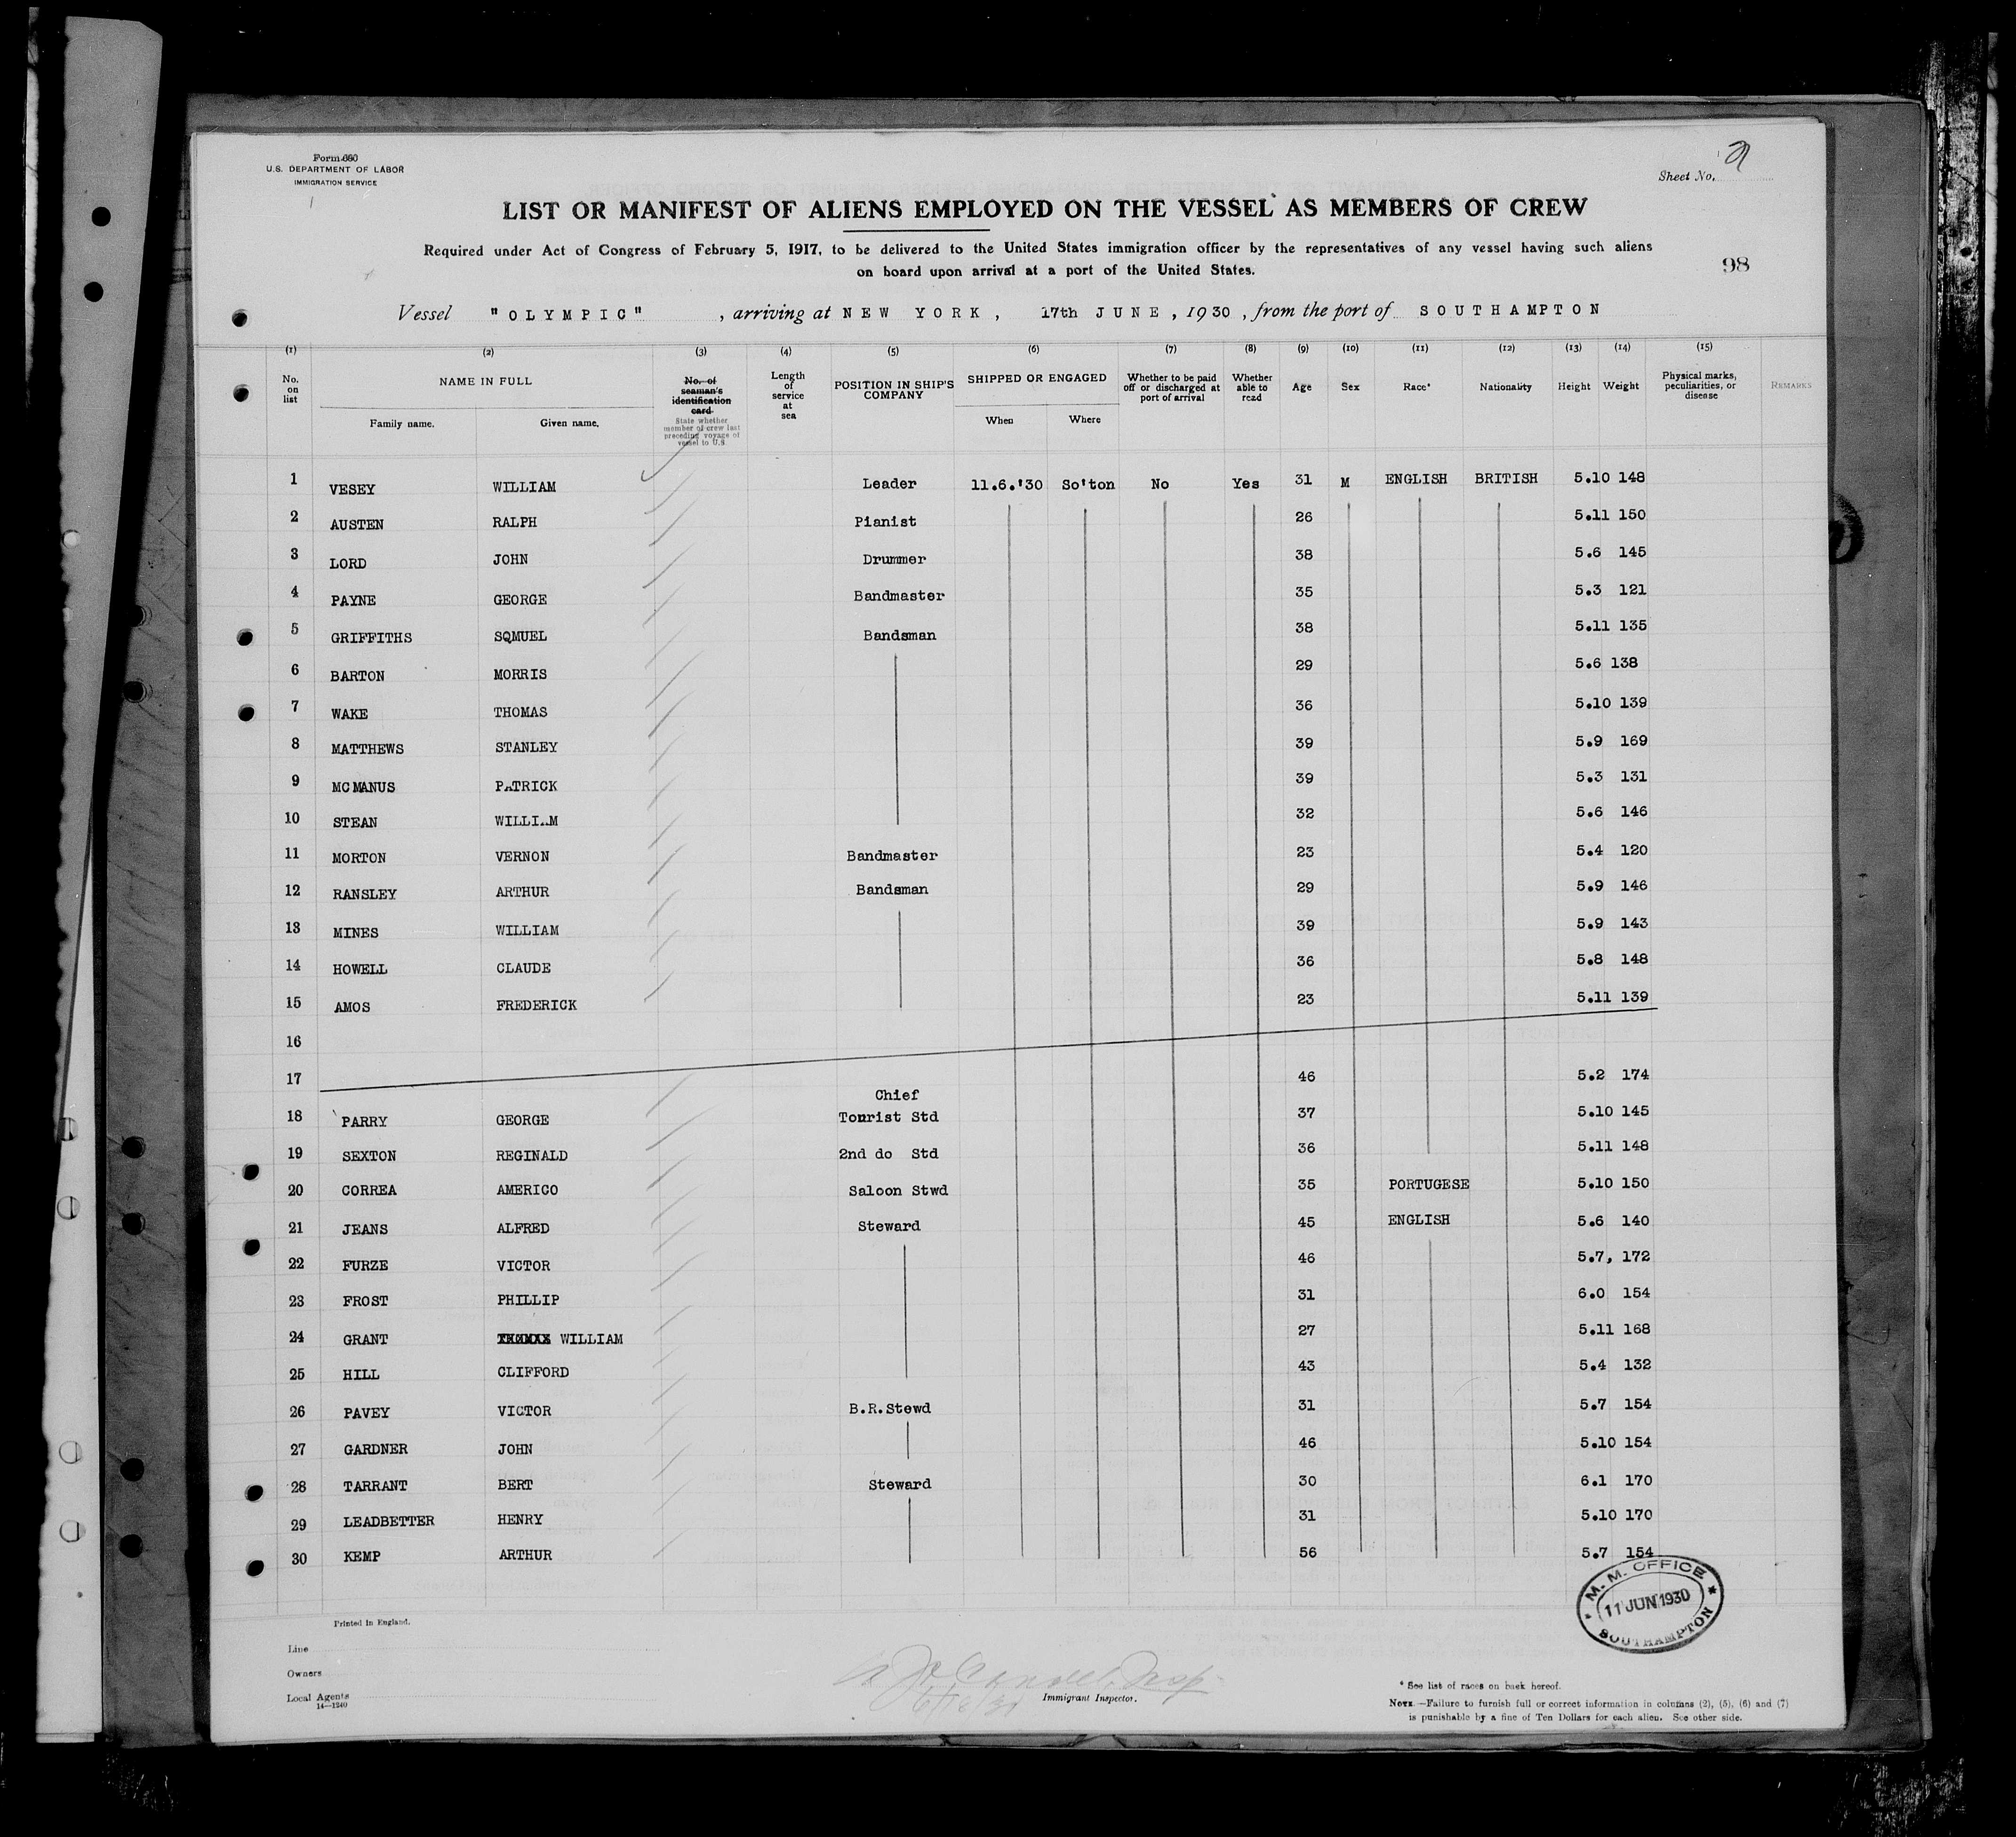 Form 680
U.S. DEPARTMENT OF LABOR
IMMIGRATION SERVICE
Sheet No.
LIST OR MANIFEST OF ALIENS EMPLOYED ON THE VESSEL AS MEMBERS OF CREW
Required under Act of Congress of February 5, 1917, to be delivered to the United States immigration officer by the representatives of any vessel having such aliens
on board upon arrival at a port of the United States.
98
Vessel "OLYMPIC" , arriving at NEW YORK, 17th JUNE, 1930, from the port of SOUTHAMPTON
(1) (2) (3) (4) (5) (6) (7) (8) (9) (10) (11) (12) (13) (14) (15)
No. on list
NAME IN FULL
Family name. Given name.
No. of seaman's identification card.
State whether member of crew last preceding voyage of vessel to U.S.
Length of service at sea
POSITION IN SHIP'S COMPANY
SHIPPED OR ENGAGED
When Where
Whether to be paid off or discharged at port of arrival
Whether able to read
Age
Sex
Race*
Nationality
Height
Weight
Physical marks, peculiarities, or disease
REMARKS
1 VESEY WILLIAM Leader 11.6.'30 So'ton No Yes 31 M ENGLISH BRITISH 5.10 148
2 AUSTEN RALPH Pianist 26 5.11 150
3 LORD JOHN Drummer 38 5.6 145
4 PAYNE GEORGE Bandmaster 35 5.3 121
5 GRIFFITHS SQMUEL Bandsman 38 5.11 135
6 BARTON MORRIS 29 5.6 138
7 WAKE THOMAS 36 5.10 139
8 MATTHEWS STANLEY 39 5.9 169
9 MCMANUS PATRICK 39 5.3 131
10 STEAN WILLIAM 32 5.6 146
11 MORTON VERNON Bandmaster 23 5.4 120
12 RANSLEY ARTHUR Bandsman 29 5.9 146
13 MINES WILLIAM 39 5.9 143
14 HOWELL CLAUDE 36 5.8 148
15 AMOS FREDERICK 23 5.11 139
16
17 46 5.2 174
18 PARRY GEORGE Chief Tourist Std 37 5.10 145
19 SEXTON REGINALD 2nd do Std 36 5.11 148
20 CORREA AMERICO Saloon Stwd 35 PORTUGESE 5.10 150
21 JEANS ALFRED Steward 45 ENGLISH 5.6 140
22 FURZE VICTOR 46 5.7, 172
23 FROST PHILLIP 31 6.0 154
24 GRANT WILLIAM 27 5.11 168
25 HILL CLIFFORD 43 5.4 132
26 PAVEY VICTOR B.R.Stewd 31 5.7 154
27 GARDNER JOHN 46 5.10 154
28 TARRANT BERT Steward 30 6.1 170
29 LEADBETTER HENRY 31 5.10 170
30 KEMP ARTHUR 56 5.7 154
M. M. OFFICE
11 JUN 1930
SOUTHAMPTON
Printed in England.
Line
Owners
Local Agents
14—1240
Immigrant Inspector.
* See list of races on back hereof.
NOTE.—Failure to furnish full or correct information in columns (2), (5), (6) and (7)
is punishable by a fine of Ten Dollars for each alien. See other side.